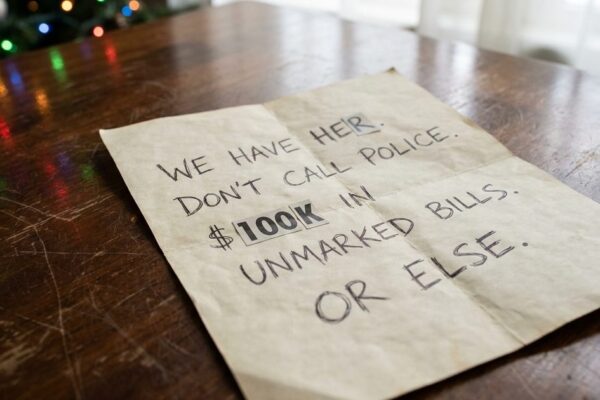 WE HAVE HER.
DON'T CALL POLICE.
$100K IN
UNMARKED BILLS.
OR ELSE.